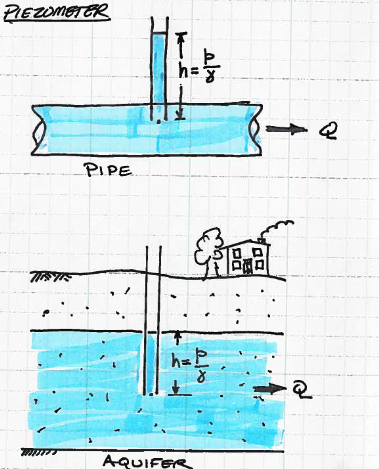 PIEZOMETER
h = p/γ
Q
PIPE
h = p/γ
Q
AQUIFER